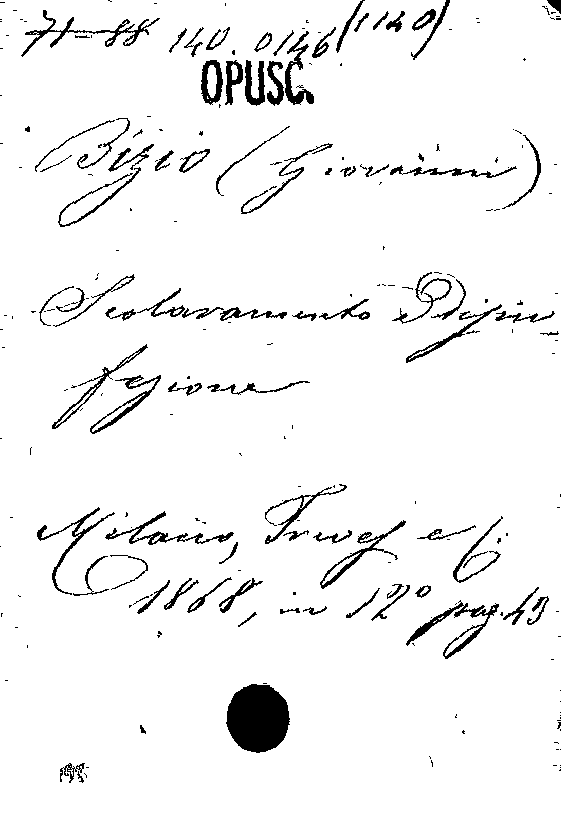 71-88 140. 0146 (1140)
OPUSC.
Bizio (Giovanni)
Scoloramento e Disin
fezione
Milano, Treves e C.
1868, in 12° pag. 43